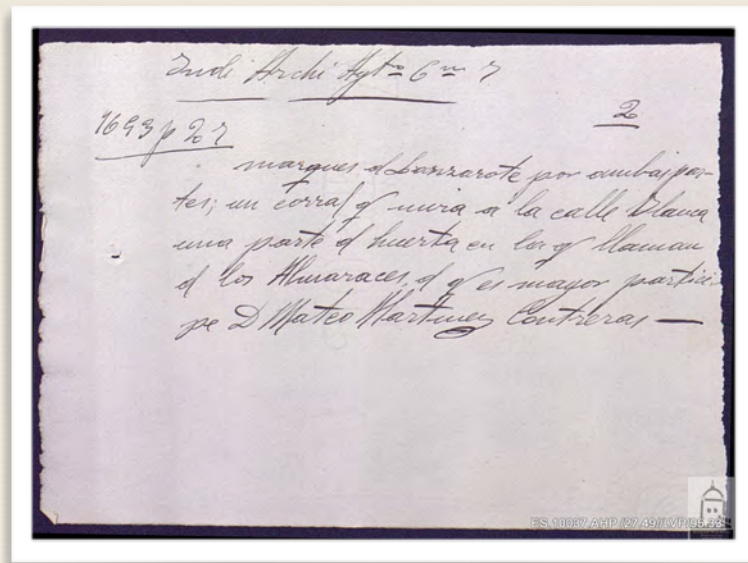 Indi Archi Aytº 6
2
1693 p 2
marques d Lanzarote por ambas par-
tes; un corral q mira a la calle Blanca
una parte d huerta en la q llaman
d los Almaraces, d q es mayor partici-
pe D Mateo Martinez Contreras —
ES.10037.AHP